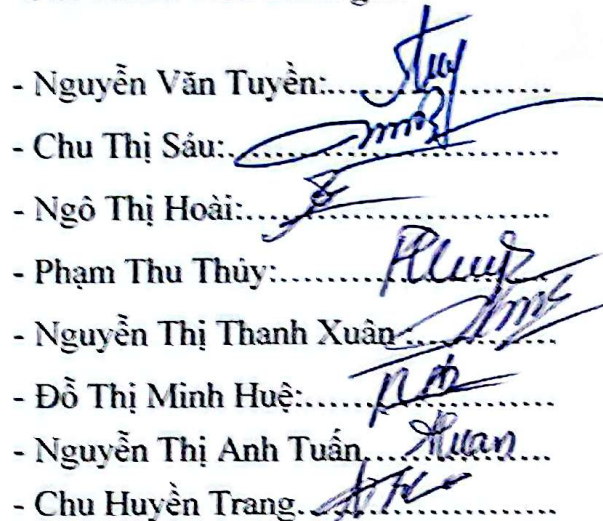 - Nguyễn Văn Tuyền:..............................
- Chu Thị Sáu:..............................
- Ngô Thị Hoài:..............................
- Phạm Thu Thủy:..............................
- Nguyễn Thị Thanh Xuân :..............................
- Đỗ Thị Minh Huệ:..............................
- Nguyễn Thị Anh Tuấn..............................
- Chu Huyền Trang..............................